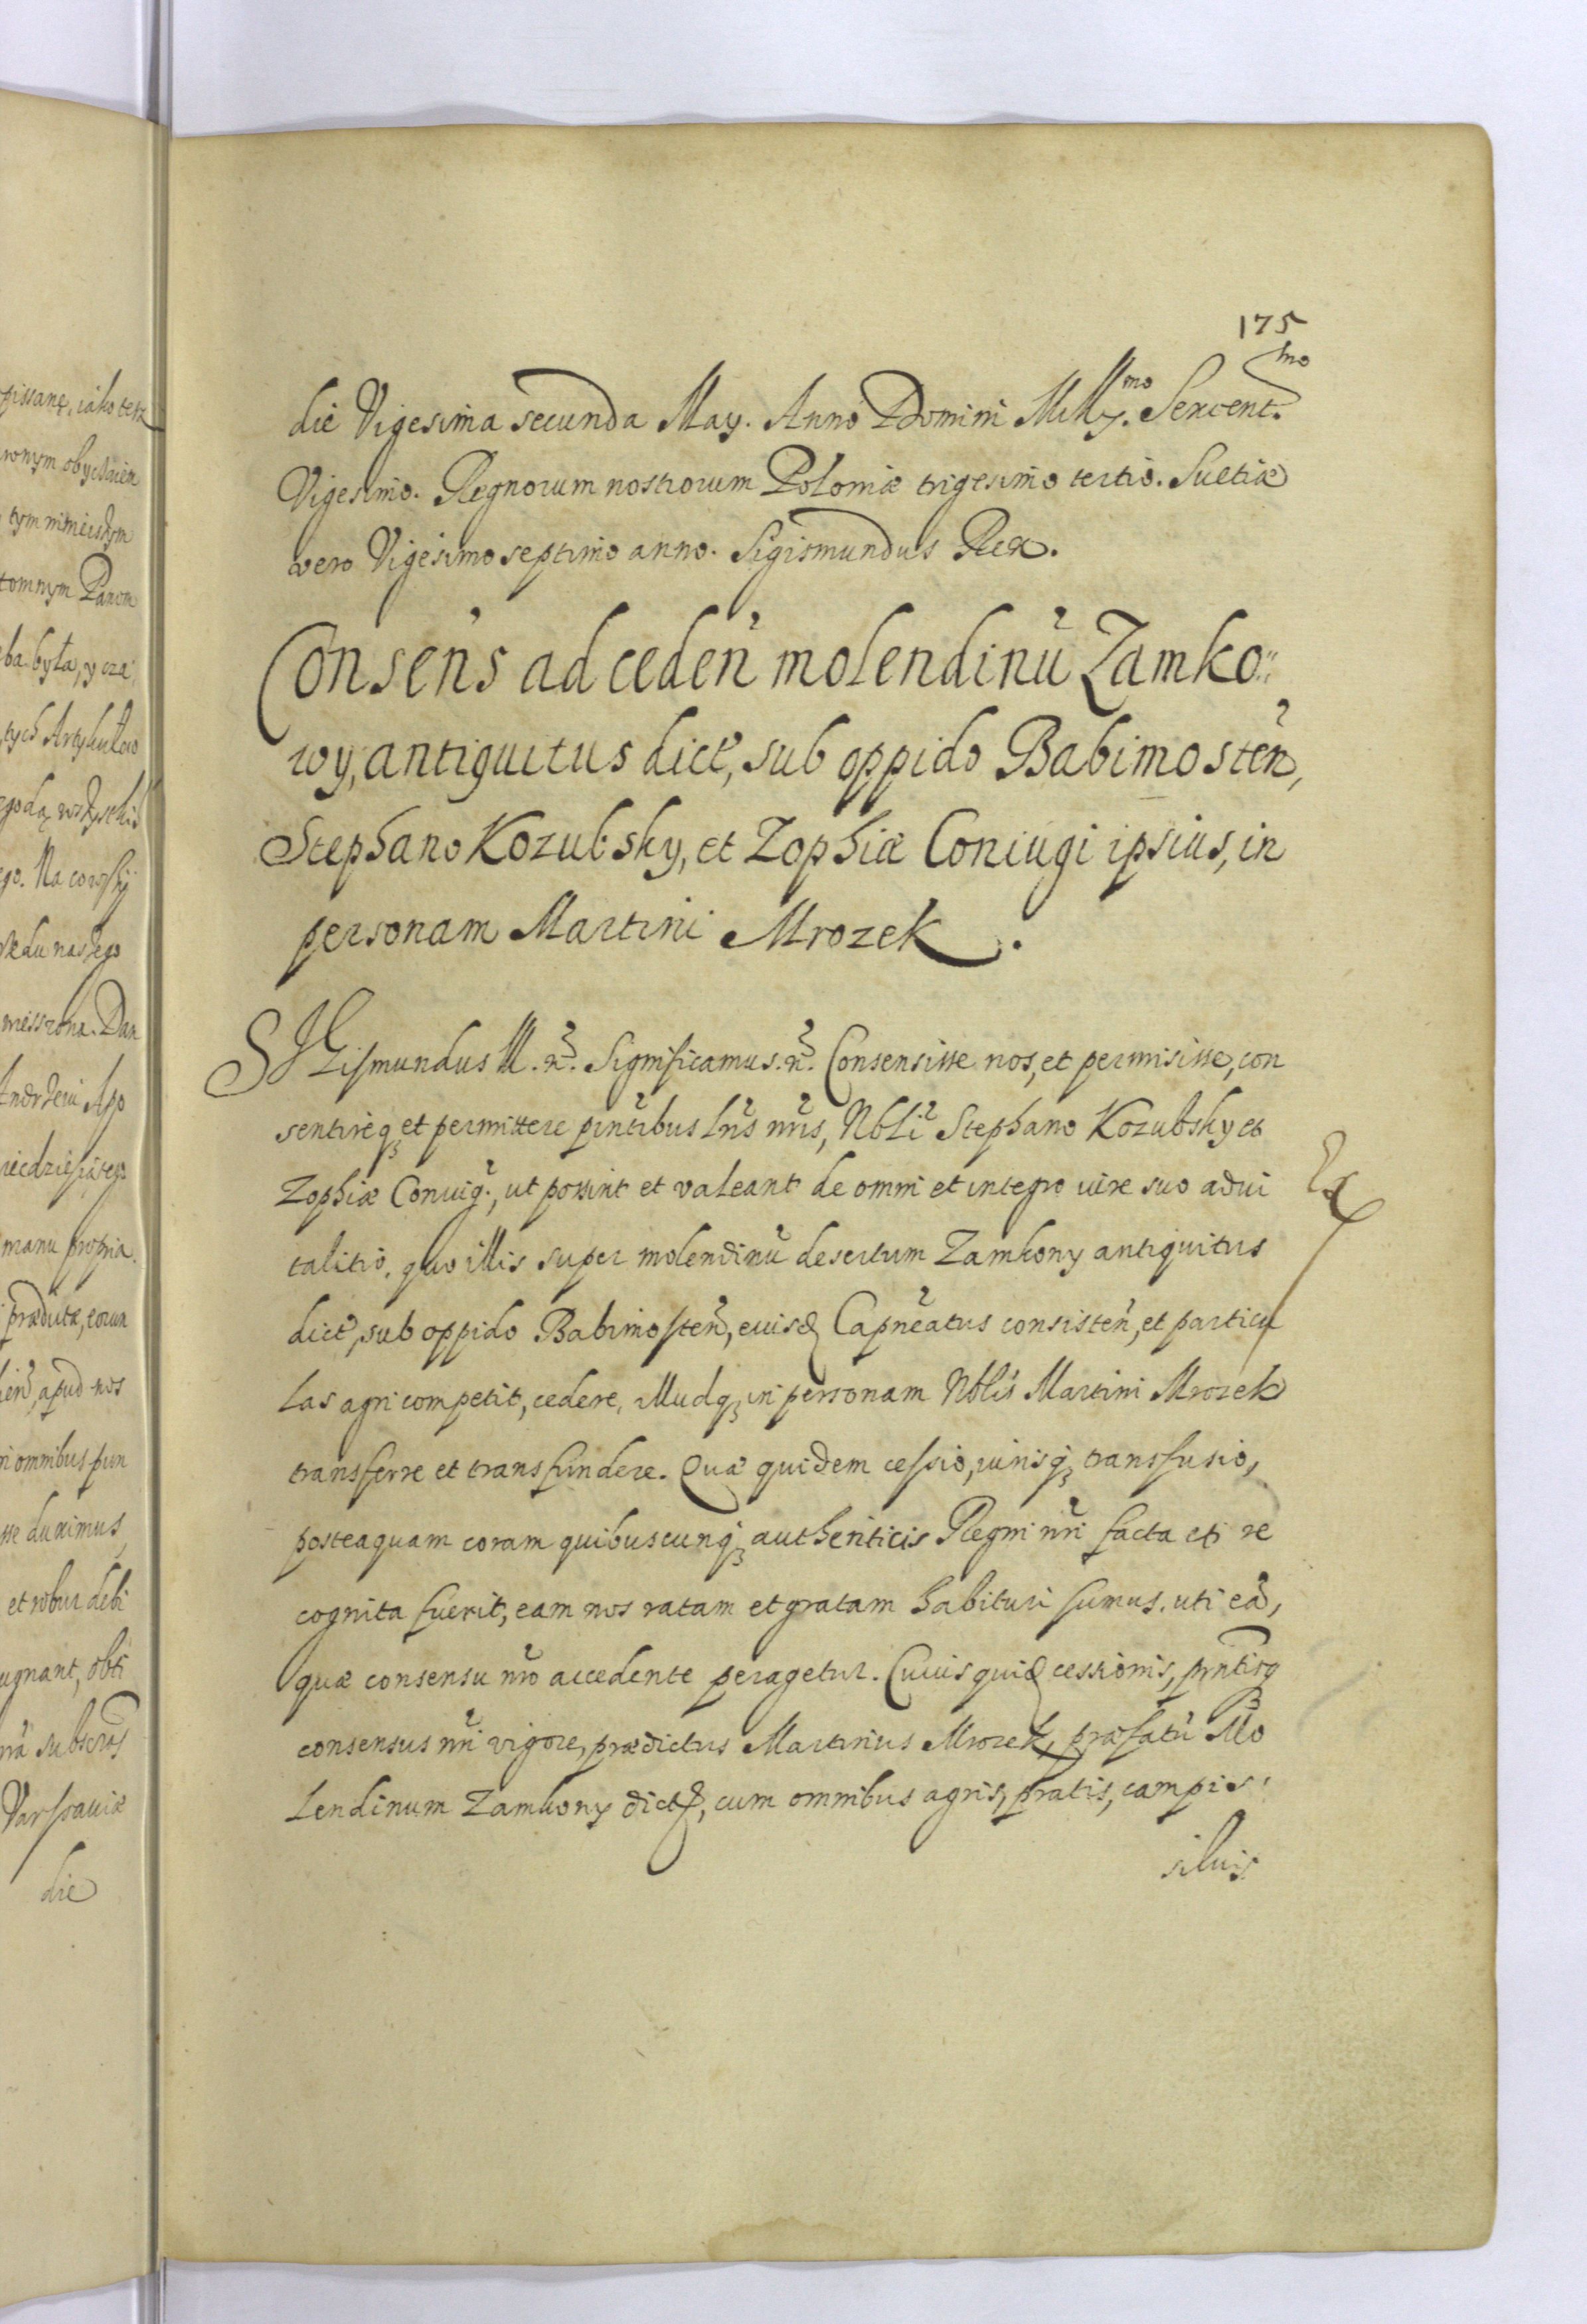 pissanę, iako tesz
wnym obyczaiem
tym ninieiszym
tomnym Panom
ba była, y cza
tych Artykułow
zgodą wszystkich
go. Na co wszy
Vrzędu naszego
mieszona. Dan
manu propria.
præductæ, eorum
apud nos
omnibus pun
sse duximus,
et robur debi
ugnant, obti
Varsaviæ
die
175
die Vigesima secunda May. Anno Domini Mill.mo Sexcent.mo
Vigesimo. Regnorum nostrorum Poloniæ trigesimo tertio. Suetiæ
vero Vigesimo septimo anno. Sigismundus Rex.
Consens ad ceden̄ molendinū Zamko:
wy, antiquitus dict, sub oppido Babimosten̄,
Stephano Kozubsky, et Zophiæ Coniugi ipsius, in
personam Martini Mrozek.
SIGismundus III. n̄. Significamus. n̄. Consensisse nos, et permisisse, con
sentireq et permittere pn̄tibus lrīs nrīs, Nbli Stephano Kozubsky et
Zophiæ Coniug., ut possint et valeant de omni et integro iure suo advi
talitio, quo illis super molendinū desertum Zamkowy antiquitus
dict, sub oppido Babimosten̄, eiusd Capn̄eatus consisten̄, et particu
las agri competit, cedere, illudq in personam Nblis Martini Mrozek
transferre et transfundere. Quæ quidem cessio, iurisq transfusio,
posteaquam coram quibuscunq authenticis Regni nrī facta et re
cognita fuerit, eam nos ratam et gratam habituri sumus. uti eā,
quæ consensu nrō accedente peragetur. Cuius quid cessionis, pn̄tisq
consensus nrī vigore, prædictus Martinus Mrozek, præfatū Mo
lendinum Zamkowy dict, cum omnibus agris, pratis, campis,
siluis